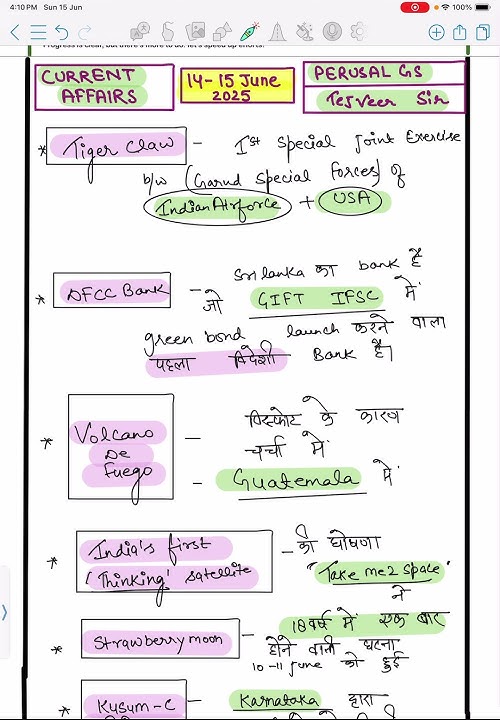 4:10 PM Sun 15 Jun
100%
Progress is clear, but there's more to do. let's speed up efforts.
CURRENT AFFAIRS
14-15 June 2025
PERUSAL GS
Tejveer Sir
* Tiger Claw - Ist Special Joint Exercise
b/w (Garud Special Forces) of
Indian Airforce + USA
* DFCC Bank - Sri lanka का bank है
जो GIFT IFSC में
green bond launch करने वाला
पहला विदेशी Bank है।
* Volcano De Fuego - विस्फोट के कारण
चर्चा में
- Guatemala में
* India's first 'Thinking' satellite - की घोषणा
"Take me2 space"
ने
* Strawberry moon - 18 वर्ष में एक बार
होने वाली घटना
10-11 June को हुई
* Kusum-C
Karnataka द्वारा